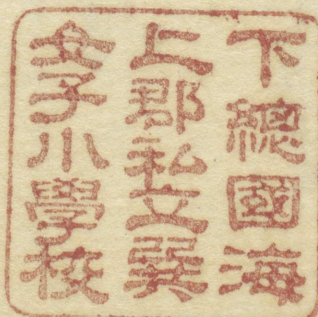 下總國海
上郡私立巽
女子小學校